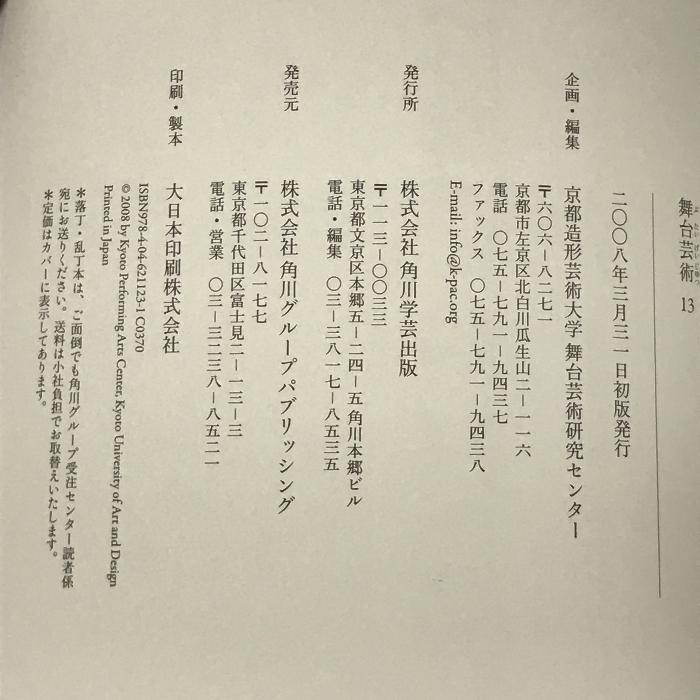 舞台芸術 13
二〇〇八年三月三一日初版発行
企画・編集
京都造形芸術大学 舞台芸術研究センター
〒六〇六−八二七一
京都市左京区北白川瓜生山二−一一六
電話 〇七五−七九一−九四三七
ファックス 〇七五−七九一−九四三八
E-mail: info@k-pac.org
発行所
株式会社 角川学芸出版
〒一一三−〇〇三三
東京都文京区本郷五−二四−五 角川本郷ビル
電話・編集 〇三−三八一七−八五三五
発売元
株式会社 角川グループパブリッシング
〒一〇二−八一七七
東京都千代田区富士見二−一三−三
電話・営業 〇三−三二三八−八五二一
印刷・製本
大日本印刷株式会社
ISBN978-4-04-621123-1 C0370
© 2008 by Kyoto Performing Arts Center, Kyoto University of Art and Design
Printed in Japan
＊落丁・乱丁本は、ご面倒でも角川グループ受注センター読者係
宛にお送りください。送料は小社負担でお取替えいたします。
＊定価はカバーに表示してあります。